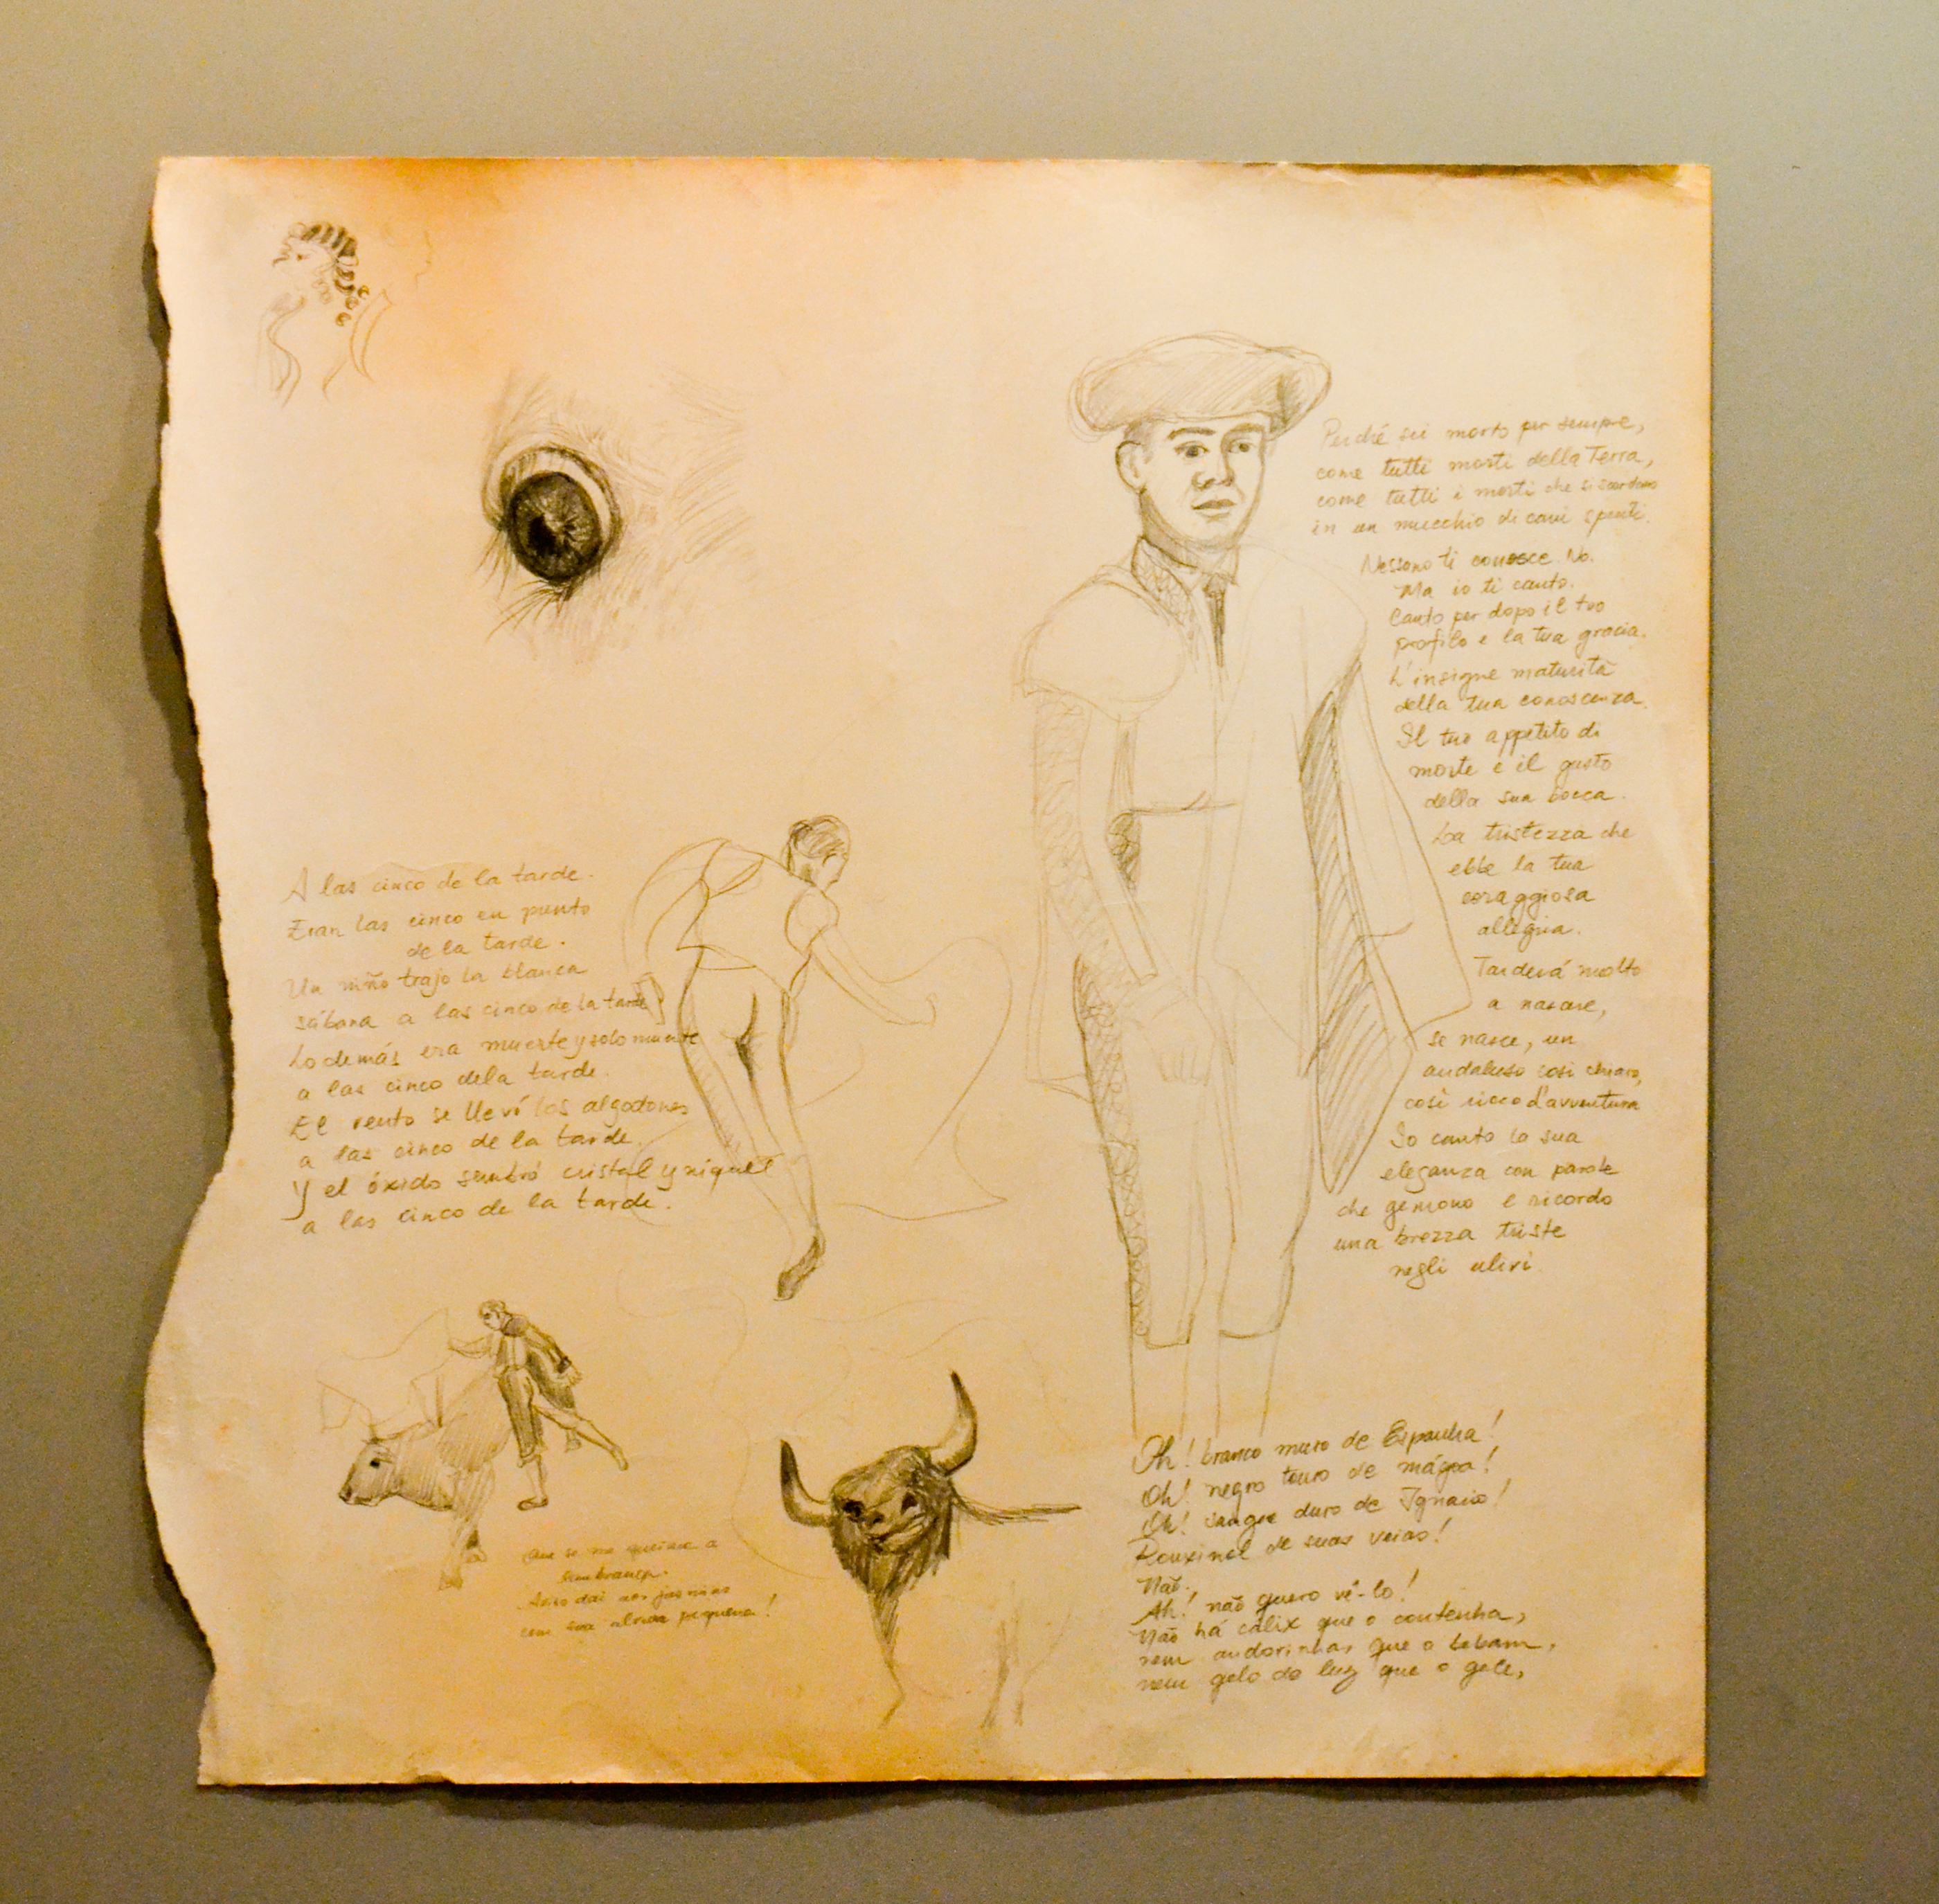 A las cinco de la tarde.
Eran las cinco en punto
de la tarde.
Un niño trajo la blanca
sábana a las cinco de la tarde
Lo demás era muerte y solo muerte
a las cinco dela tarde.
El vento se llevó los algodones
a las cinco de la tarde.
Y el óxido sembró cristal y níquel
a las cinco de la tarde.
Que se me queime a
lembrança.
Aviso dai aos jasmins
com sua alvura pequena!
Perché sei morto per sempre,
come tutti morti della Terra,
come tutti i morti che si scordano
in un mucchio di cani spenti.
Nessuno ti conosce. No.
Ma io ti canto.
Canto per dopo il tuo
profilo e la tua grazia.
L'insigne maturità
della tua conoscenza.
Il tuo appetito di
morte e il gusto
della sua bocca.
La tristezza che
ebbe la tua
coraggiosa
allegria.
Tarderá molto
a nascere,
se nasce, un
andaluso così chiaro,
così ricco d'avventura
Io canto la sua
eleganza con parole
che gemono e ricordo
una brezza triste
negli ulivi
Oh! branco muro de Espanha!
Oh! negro touro de mágoa!
Oh! sangue duro de Ignacio!
Rouxinol de suas veias!
Não.
Ah! não quero vê-lo!
Não há cálix que o contenha,
nem andorinhas que o bebam,
nem gelo de luz que o gele,